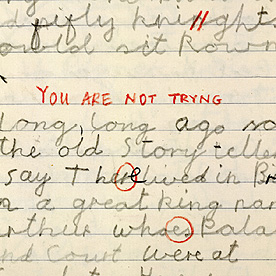 knight
would sit
YOU ARE NOT TRYNG
Long, long ago so
the old Story telle
say There lived in Br
a great king nam
whoes Pala
nd Court were at